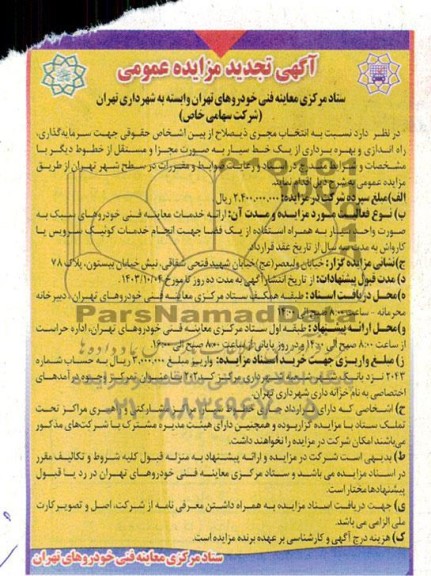 آگهی تجدید مزایده عمومی
ستاد مرکزی معاینه فنی خودروهای تهران وابسته به شهرداری تهران
(شرکت سهامی خاص)
در نظر دارد نسبت به انتخاب مجری ذیصلاح از بین اشخاص حقوقی جهت سرمایه‌گذاری،
راه اندازی و بهره برداری از یک خط سیار به صورت مجزا و مستقل از خطوط دیگر با
مشخصات و شرایط مندرج در اسناد و رعایت ضوابط و مقررات در سطح شهر تهران از طریق
مزایده عمومی به شرح ذیل اقدام نماید.
الف) مبلغ سپرده شرکت در مزایده: ۲،۴۰۰،۰۰۰،۰۰۰ ریال
ب) نوع فعالیت مورد مزایده و مدت آن: ارائه خدمات معاینه فنی خودروهای سبک به
صورت واحد سیار به همراه استفاده از یک فضا جهت انجام خدمات کوئیک سرویس یا
کارواش به مدت سه سال از تاریخ عقد قرارداد
ج) نشانی مزایده گزار: خیابان ولیعصر(عج) خیابان شهید فتحی شقاقی، نبش خیابان بیستون، پلاک ۷۸
د) مدت قبول پیشنهادات: از تاریخ انتشار آگهی به مدت ده روز تا مورخ ۱۴۰۳/۱۰/۰۴
ه) محل دریافت اسناد: طبقه همکف ستاد مرکزی معاینه فنی خودروهای تهران، دبیرخانه
محرمانه - ساعت
و) محل ارائه پیشنهاد: طبقه اول ستاد مرکزی معاینه فنی خودروهای تهران، اداره حراست
از ساعت ۸:۰۰ صبح الی و در روز پایانی از ساعت ۸:۰۰ صبح الی
ز) مبلغ واریزی جهت خرید اسناد مزایده: واریز مبلغ ۳،۰۰۰،۰۰۰ ریال به حساب شماره
۲۰۲۳ نزد بانک
اختصاصی به نام خزانه داری شهر تهران
ح) اشخاصی که دارای قرارداد مراکز تحت
تملک ستاد با مزایده گزار بوده و همچنین دارای هیئت مدیره مشترک با شرکت‌های مذکور
می‌باشند امکان شرکت در مزایده را نخواهند داشت.
ط) بدیهی است شرکت در مزایده و ارائه پیشنهاد به منزله قبول کلیه شروط و تکالیف مقرر
در اسناد مزایده می باشد و ستاد مرکزی معاینه فنی خودروهای تهران در رد یا قبول
پیشنهادها مختار است.
ی) جهت دریافت اسناد مزایده به همراه داشتن معرفی نامه از شرکت، اصل و تصویر کارت
ملی الزامی می باشد.
ک) هزینه درج آگهی و کارشناسی بر عهده برنده مزایده است.
ستاد مرکزی معاینه فنی خودروهای تهران
ParsNamadData
۰۲۱-۸۸۳۴۹۶۷۰-۵